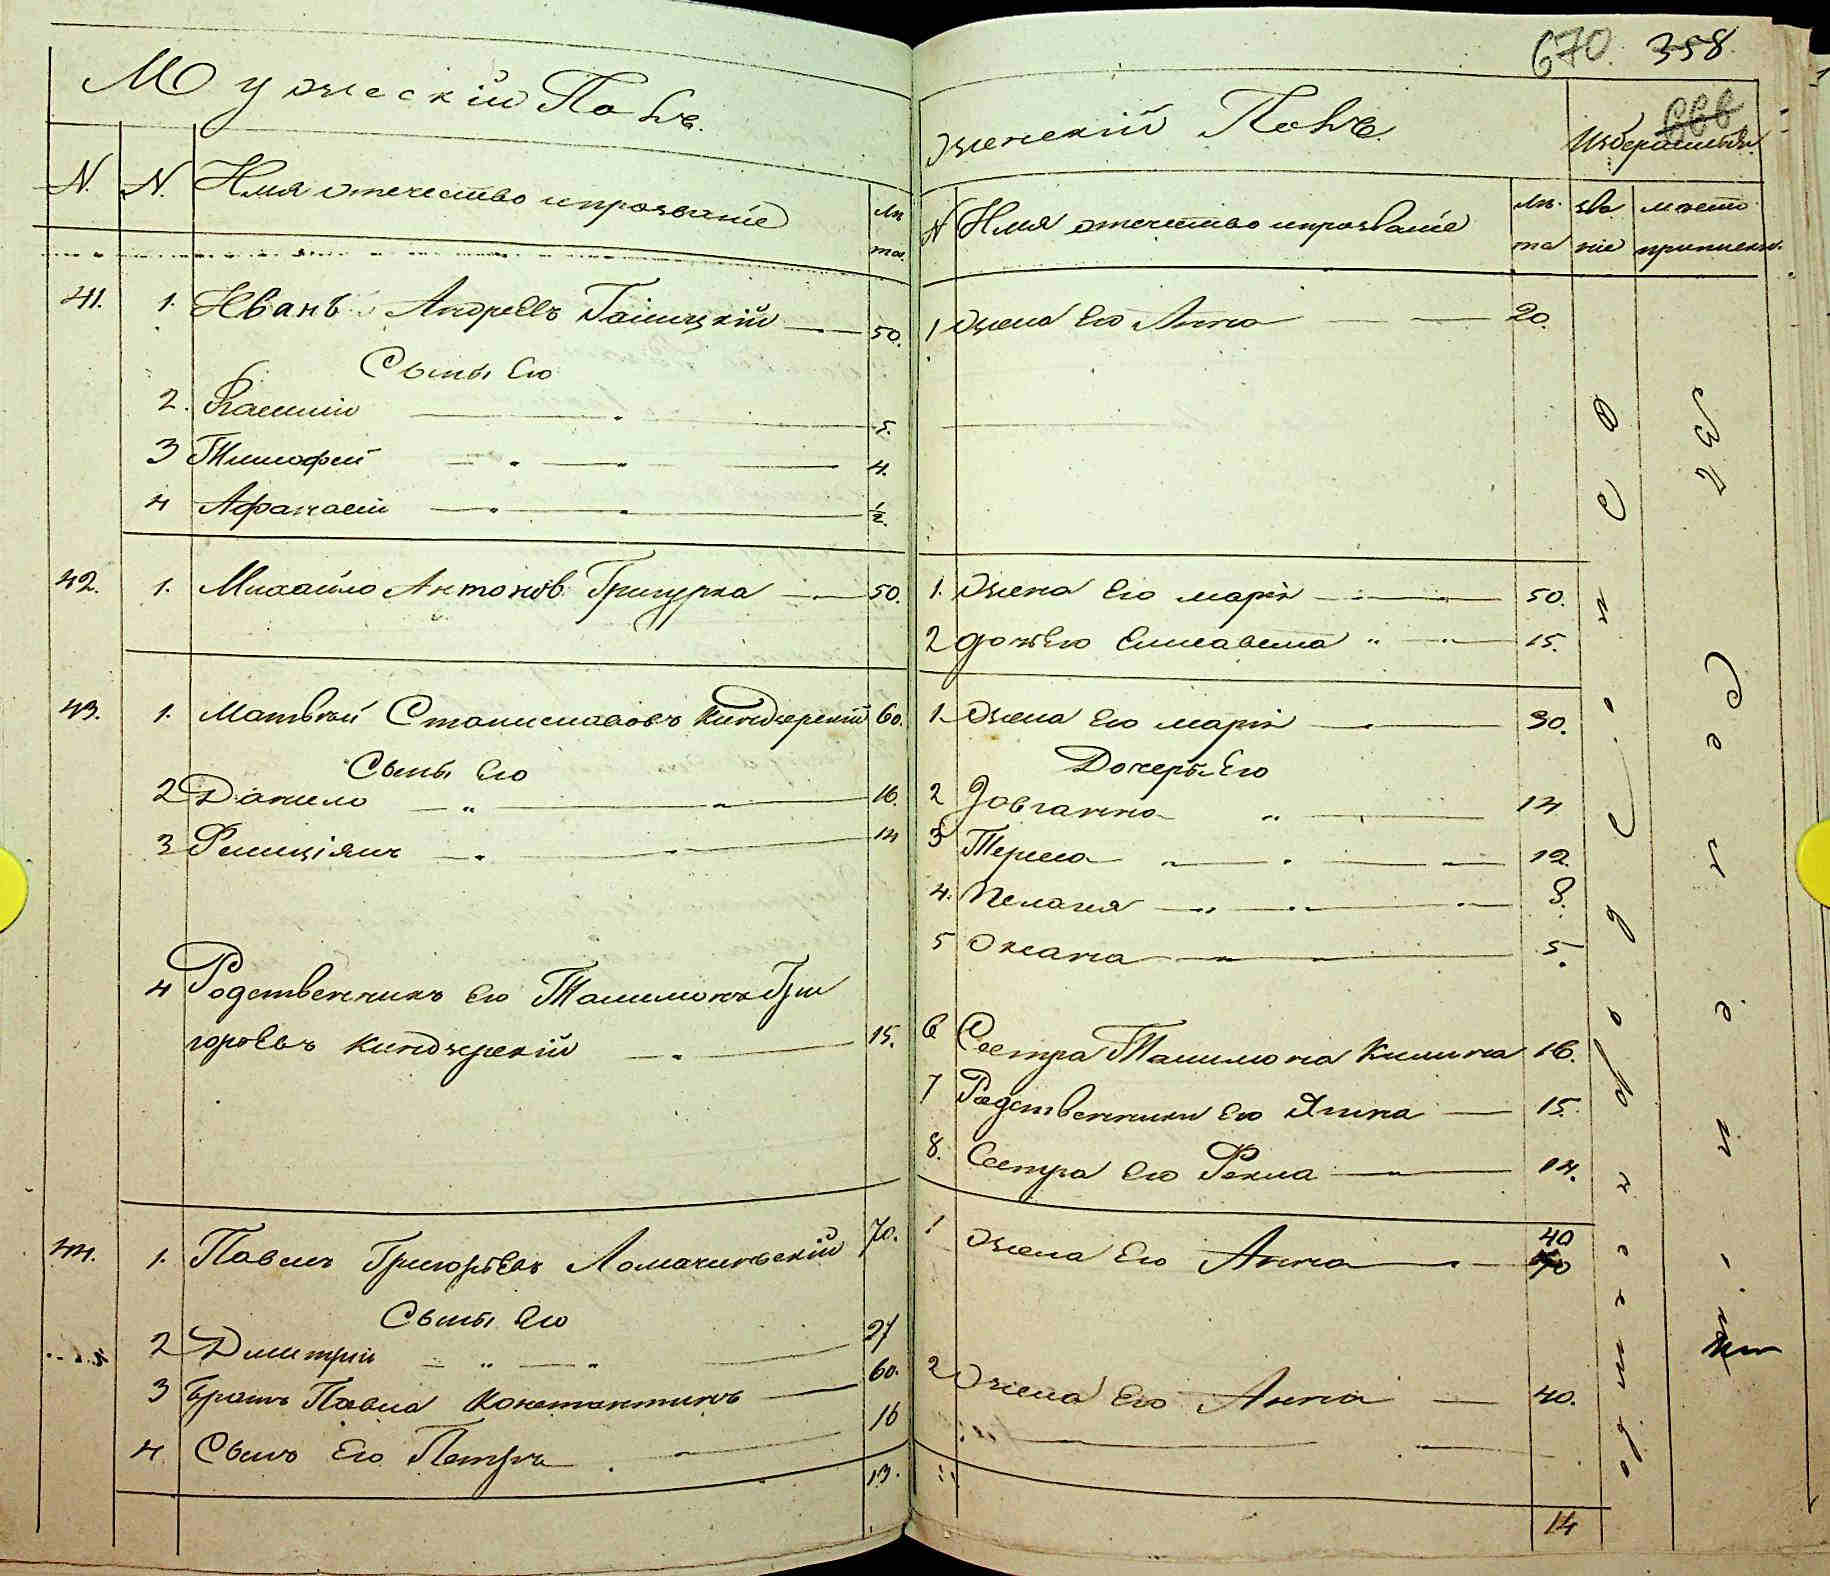 Мужескій Полъ.
N. N. Имя отечество ипрозваніе лѣ
та.
41. 1. Иванъ Андреевъ Галицкій 50.
Сыны Его
2. 5.
3 Тимофей 4.
4 Афанасій ½.
42. 1. Михайло Антонов Григурка 50.
43. 1. Матвѣй Станиславовъ Кинджерскій 60.
Сыны Его
2 Данило 16.
3 Фелиціянъ 14
4 Родственникъ Его Гри
горьевъ Кинджерскій 15.
44. 1. Павелъ Григорьевъ Ломачинскій 70.
Сыны Его
2 Дмитрій 27
3 Братъ Павла Константинъ 60.
4 Сынъ Его Петръ 16
13.
670. 358.
женскій Полъ
N Имя отечество ипрозваніе лѣ-
та зва
ніе мѣсто
приписки.
1 жена Его Анна 20.
1. жена Его марія 50.
2 дочь Его Елисавета 15.
1. жена Его марія 30.
Дочери Его
2 14
3 Тереса 12
4. Пелагея 8.
5 Оксана 5.
6 Сестра 16.
7 Родственники Его Анна 15.
8. Сестра Его Фекла 14.
1 жена Его Анна 40
2 жена Его Анна 40.
14